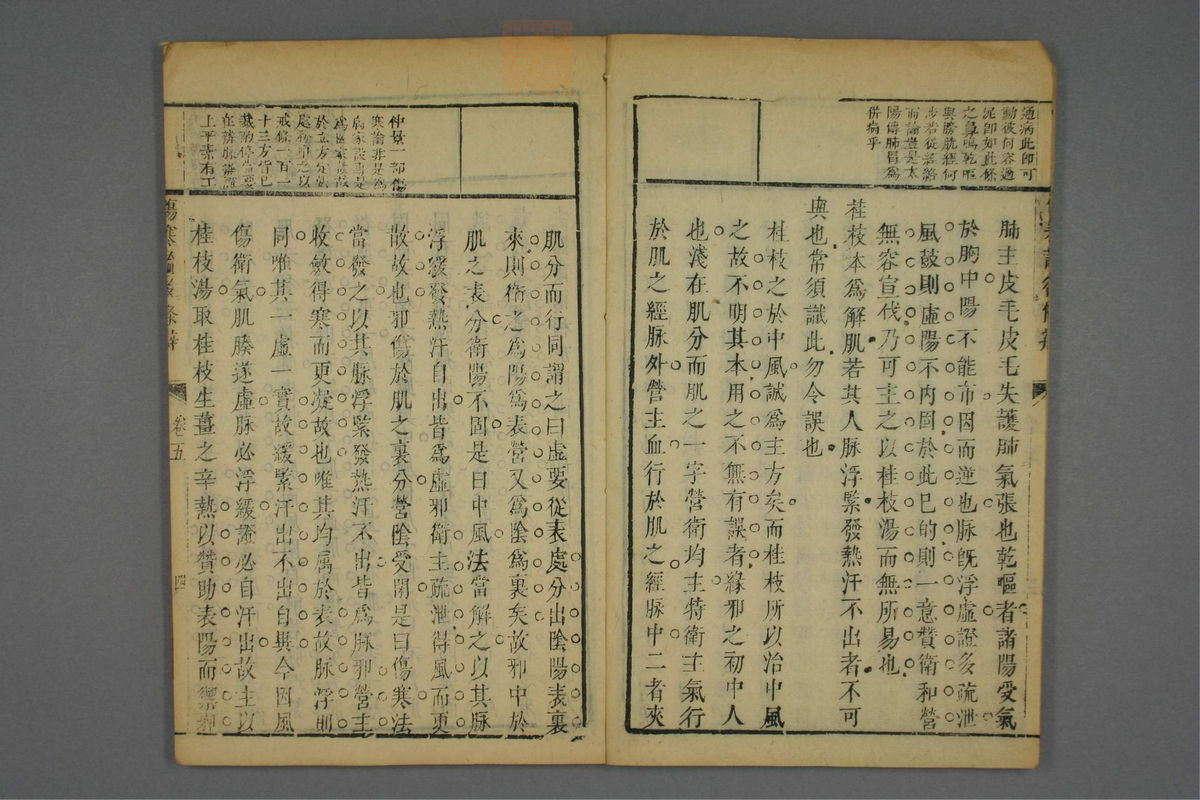 通病此即可
動彼何容過
泥即如此條
之鼻鳴乾嘔
與膀胱經何
涉若從諸將
而論豈是太
陽傳肺胃為
併病乎
肺主皮毛皮毛失護肺氣張也乾嘔者諸陽受氣
於胸中陽不能布因而逆也脉旣浮虛證多疏泄
風鼓則虛陽不内固於此已的則一意贊衛和營
無容宣伐乃可主之以桂枝湯而無所易也
桂枝本為解肌若其人脉浮緊發熱汗不出者不可
與也常須識此勿令誤也
桂枝之於中風誠為主方矣而桂枝所以治中風
之故不明其本用之不無有誤者緣邪之初中人
也淺在肌分而肌之一字營衛均主特衛主氣行
於肌之經脉外營主血行於肌之經脉中二者夾
仲景一部傷
寒論非是為
病家設書是
為醫家設故
於立方定法
處務申之以
戒條一百一
十三方皆已
裁酌停當要
在辨脉辨證
上平素有工
肌分而行同謂之曰虛要從表處分出陰陽表裏
來則衛之為陽為表營又為陰為裏矣故邪中於
肌之表分衛陽不固是曰中風法當解之以其脉
浮緩發熱汗自出皆為虛邪衛主疏泄得風而更
散故也邪傷於肌之裏分營陰受閉是曰傷寒法
當發之以其脉浮緊發熱汗不出皆為脉邪營主
收斂得寒而更凝故也唯其均属於表故脉浮則
同唯其一虛一實故緩緊汗出不出自異今因風
傷衛氣肌腠遂虛脉必浮緩證必自汗出故主以
桂枝湯取桂枝生薑之辛熱以贊助表陽而禦邪
傷寒論後條辨
卷五
四